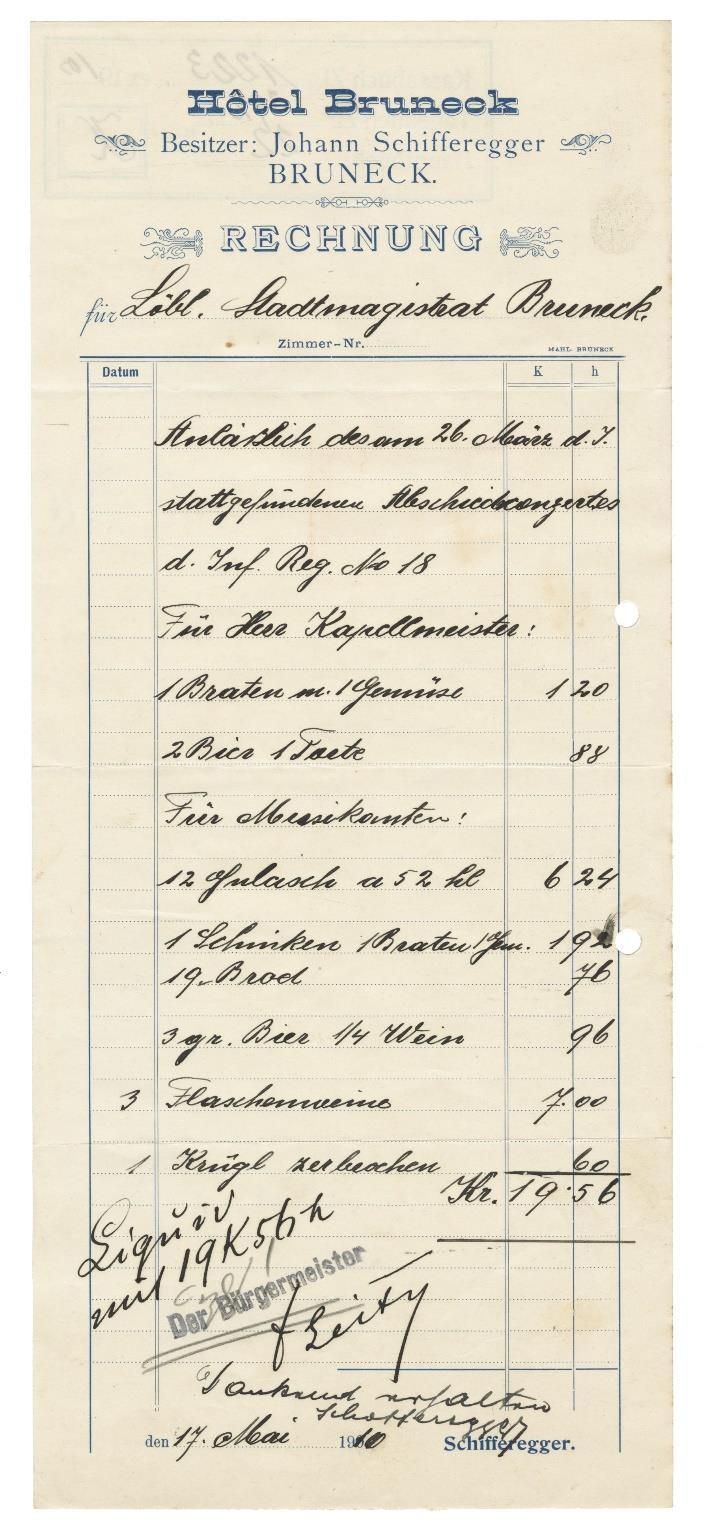 Hôtel Bruneck
Besitzer: Johann Schifferegger
BRUNECK.
RECHNUNG
für Löbl. Stadtmagistrat Bruneck.
Zimmer-Nr.
MAHL. BRUNECK
Datum K h
Anläßlich des am 26. März d. J.
stattgefundenen Abschiedconzertes
d. Inf. Reg. No 18
Für Herr Kapellmeister:
1 Braten m. 1 Gemüse 1 20
2 Bier 1 Torte 88
Für Musikanten:
12 Gulasch a 52 hl 6 24
1 Schinken 1 Braten 1 Gem. 1 92
19 Brod 76
3 gr. Bier 1/4 Wein 96
3 Flaschenweine 7.00
1 Krügl zerbrochen 60
Kr. 19.56
Liquid
mit 19 K 56 h
Der Bürgermeister
Dankend erhalten
Schifferegger
den 17. Mai 1910 Schifferegger.